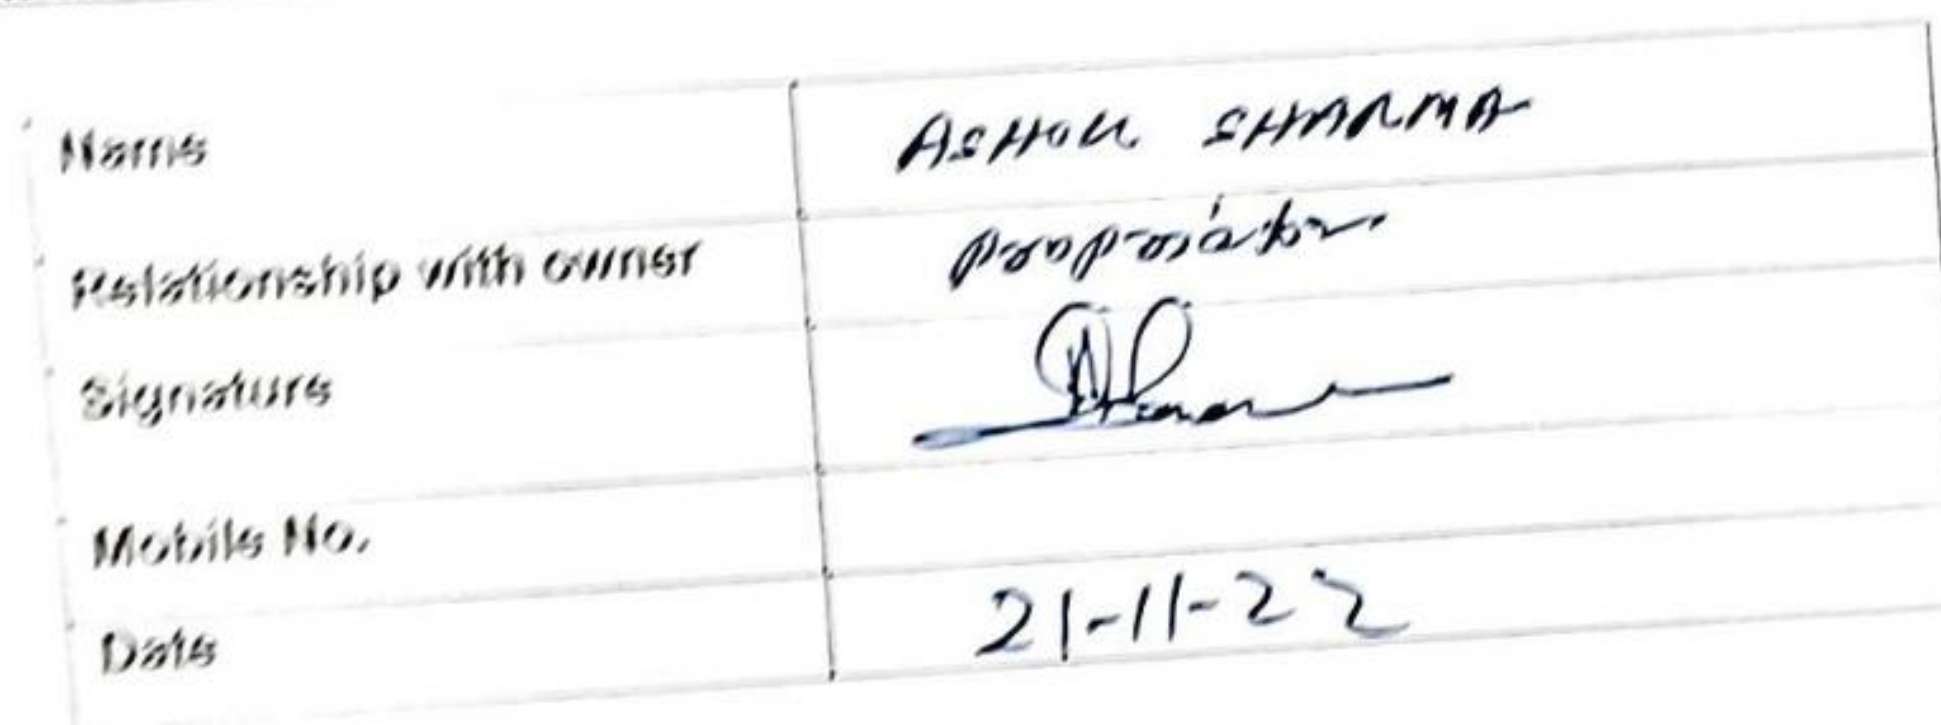 Name ASHOK SHARMA
Relationship with owner Propriator
Signature
Mobile No.
Date 21-11-22